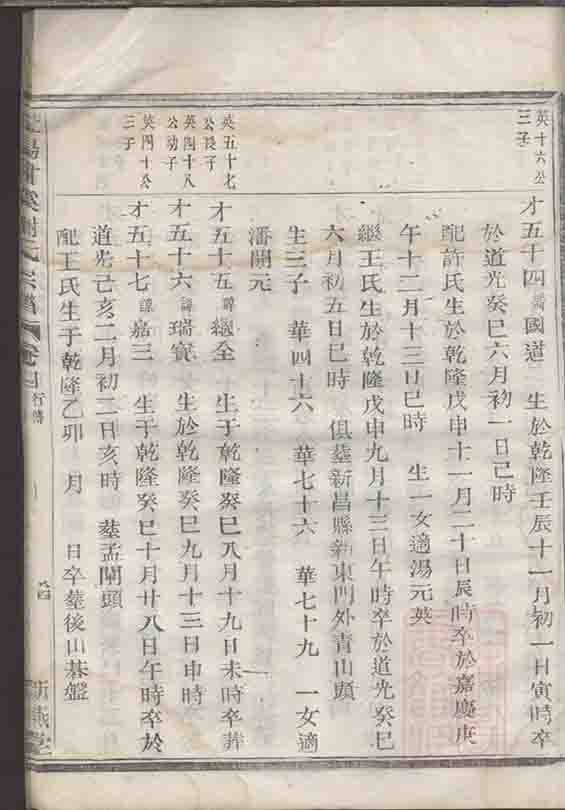 英十六公
三子
才五十四諱國道 生於乾隆壬辰十一月初一日寅時卒
於道光癸巳六月初一日巳時
配許氏生於乾隆戊申十一月二十日辰時卒於嘉慶庚
午十二月十三日巳時 生一女適湯元英
繼王氏生於乾隆戊申九月十三日午時卒於道光癸巳
六月初五日巳時 俱塟新昌縣新東門外青山頭
生三子 華四十六 華七十六 華七十九 一女適
潘開元
英五十七
公長子
才五十五諱 全 生于乾隆癸巳八月十九日未時卒
英四十八
公幼子
才五十六諱瑞寳 生於乾隆癸巳九月十三日申時
英四十公
三子
才五十七諱嘉三 生于乾隆癸巳十月廿八日午時卒於
道光己亥二月初二日亥時 塟孟閘頭
配王氏生于乾隆乙卯 月 日卒塟後山碁盤
氏宗譜 卷 行傳